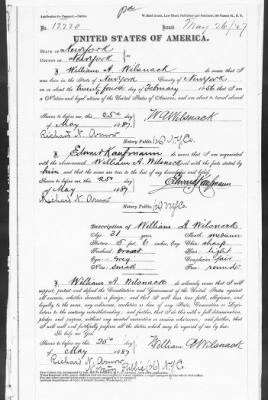 No. 12770 May 26/87
UNITED STATES OF AMERICA.
STATE OF New York
COUNTY OF New York
I, William A. Wilsnack do swear that I was
born in the State of New York County of New York
on or about the twenty fourth day of February 1856 that I am
a Native and loyal citizen of the United States of America, and am about to travel abroad
Sworn to before me, this 25th day
of May 1887 W A Wilsnack
Richard N. Arnow
Notary Public (66) N.Y.Co.
I, Edward Kaufmann do swear that I am acquainted
with the above-named William A. Wilsnack and with the facts stated by
him and that the same are true to the best of my knowledge and belief.
Sworn to before me, this 25th day
of May 1887 Edward Kaufmann
Richard N. Arnow
(66) N.Y.Co.
Description of William A. Wilsnack
Age: 31 years Mouth: medium
Stature: 5 feet 6 inches, Eng. Chin: sharp
Forehead: broad Hair: light
Eyes: Grey Complexion: fair
Nose: small Face: round
I, William A. Wilsnack do solemnly swear that I will
support, protect and defend the Constitution and Government of the United States against
all enemies, whether domestic or foreign; and that I will bear true faith, allegiance, and
loyalty to the same, any ordinance, resolution or law of any State, Convention or Legis-
lature to the contrary notwithstanding; and further, that I do this with a full determination,
pledge and purpose, without any mental reservation or evasion whatsoever; and further, that
I will well and faithfully perform all the duties which may be required of me by law.
So help me God.
Sworn to before me, this 25th day
of May 1887 William A Wilsnack
Richard N. Arnow
Notary Public (66) N.Y.Co.